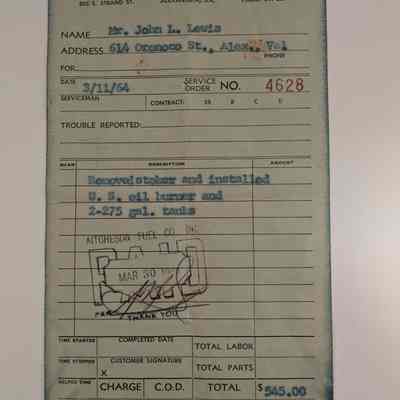 NAME Mr. John L. Lewis
ADDRESS 614 Oronoco St., Alex., Va1
FOR PHONE
DATE 3/11/64 SERVICE ORDER NO. 4628
SERVICEMAN CONTRACT:
TROUBLE REPORTED:
DESCRIPTION AMOUNT
Removed stoker and installed
U. S. oil burner and
2-275 gal. tanks
AITCHESON FUEL CO. INC.
MAR 30
THANK YOU
TIME STARTED COMPLETED DATE TOTAL LABOR
TIME STOPPED CUSTOMER SIGNATURE TOTAL PARTS
X
HELPED TIME CHARGE C.O.D. TOTAL $545.00